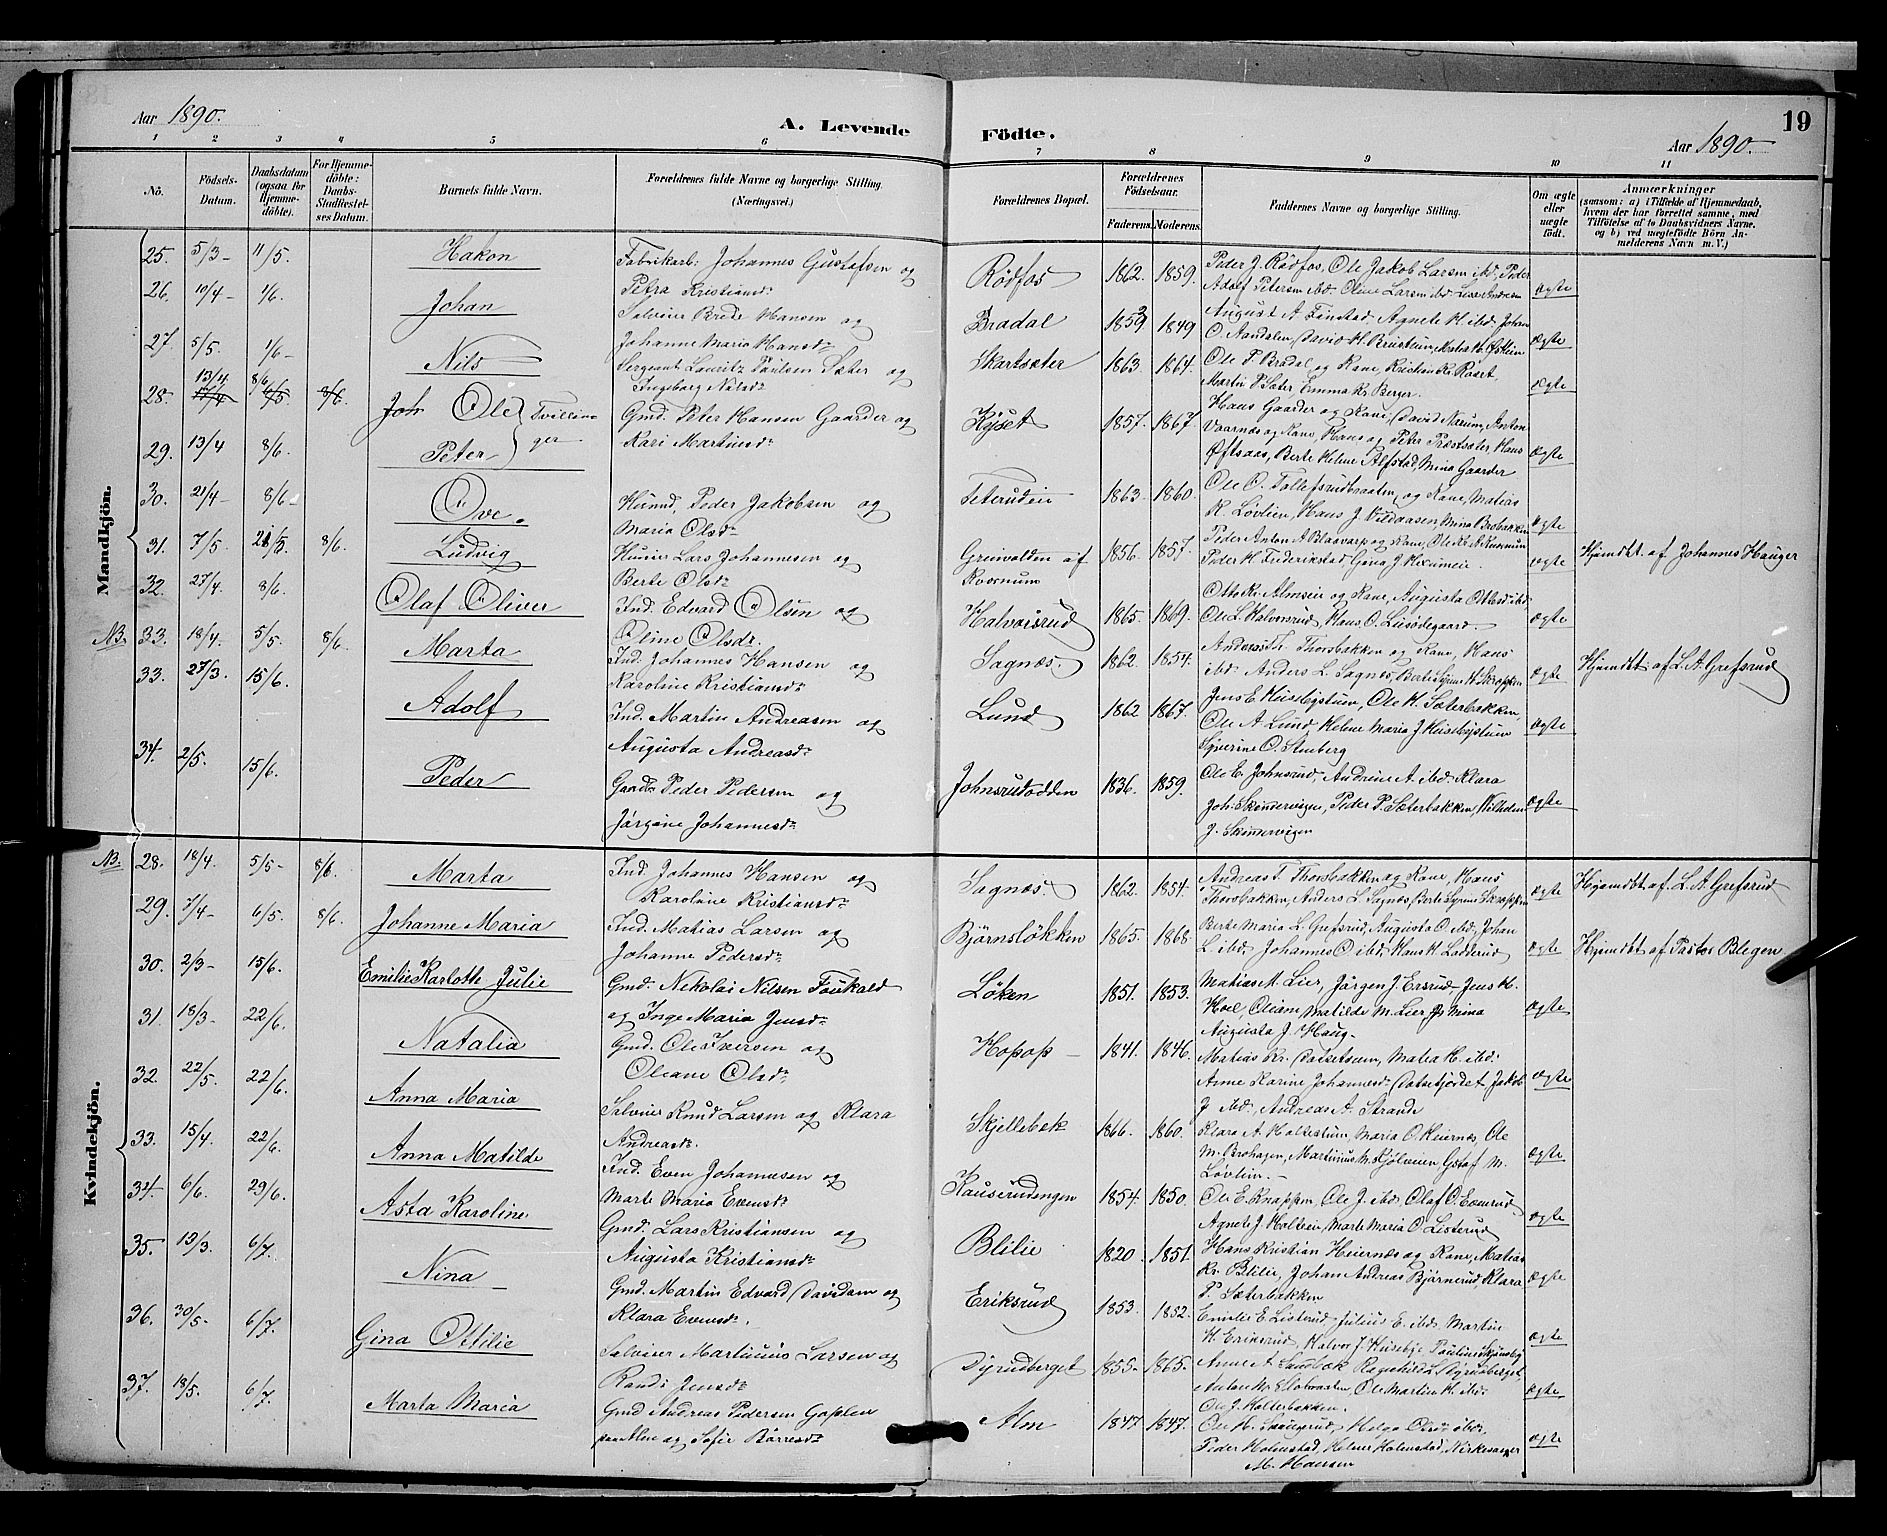 Aar 1890.
A. Levende Födte.
Aar 1890.
19
1 2 3 4 5 6 7 8 9 10 11
No.
Födsels-Datum.
Daabsdatum (ogsaa for Hjemme-döbte).
For Hjemme-döbte: Daabs-Stadfæstel-ses Datum.
Barnets fulde Navn.
Forældrenes fulde Navne og borgerlige Stilling. (Næringsvei.)
Forældrenes Bopæl.
Forældrenes Födselsaar.
Faderens. Moderens.
Faddernes Navne og borgerlige Stilling.
Om ægte eller uægte født.
Anmærkninger
(saasom: a) i Tilfælde af Hjemmedaab, hvem der har forrettet samme, med Tilföielse af to Daabsvidners Navne. og b) ved uægtefödte Börn An-melderens Navn m. V.)
Mandkjön.
25. 5/3 - 11/5. Hakon
Fabrikarb: Johannes Gustafsen og
Petra Kristiansdr
Rødfos 1862. 1859.
Peder J. Rødfos, Ole Jakob Larsen ibd, Peder
Adolf Petersen ibd. Oline Larsen ibd Lise Andersen
ægte
26. 10/4 - 1/6. Johan
Selveier Brede Hansen og
Johanne Maria Hansdr
Bradal 1859 1849
August A. Finstad Agnete H. ibd. Johan
O. Aandalen, David H. Brustuen, Matea H.
ægte
27. 5/5. 1/6 - Nils
Sergeant Lauritz Paulsen Sæter og
Ingeborg Nilsdr
Skartsæter 1863 1864.
Ole P. Bradal og Kone, Kristian Kr. Roset,
Martin P. Sæter, Emma Kr. Berger.
ægte
28. 13/4 8/6 Ole Tvillin
Gmd. Peter Hansen Gaarder og
Kari Martinsdr
Kyset 1857. 1867.
Hans Gaarder og Kone, David Narum, Anton
29. 13/4 8/6. Peter ger
Vaarnæs og Kone, Hans og Peter Præstsæter, Hans
Øftsaas, Berte Helene Alfstad, Mina Gaarder
ægte
30. 21/4 - 8/6 - Ove.
Husmd. Peder Jakobsen og
Maria Olsdr
Teterudeie 1863. 1860.
Ole O. Tollefsrudbraaten, og Kone, Matias
K. Løvlien, Hans J. Vildaasen, Mina Brobakken
ægte
31. 7/5. 21/5. 8/6. Ludvig
Husier Lars Johannesen og
Berte Olsdr
Grinvolden af Kvornum 1856. 1857.
Peder Anton A. Blaavarp og Kone, Ole Kr. A. Kvernum
Peder H. Frederikstad, Gena J.
ægte
Hjemdbt. af Johannes Hauger
32. 27/4. 8/6. Olaf Oliver
Ind. Edvard Olsen og
Oline Olsdr.
Halvorsrud 1865. 1869.
Otto Kr. Almseie og Kone, Augusta Ottesdr ibd.
Ole L. Halvorsrud, Hans O. Lusødegaard.
ægte
NB. 33. 18/4. 5/5. 8/6. Marta
Ind. Johannes Hansen og
Karoline Kristiansdr
Sagnæs. 1862. 1854.
Andreas Th. Thorsbakken og Kone, Hans
ibd. Anders L. Sagnæs, Berte Syrine H. Skroppen
ægte
Hjemdbt. af L. A. Grefsrud
33. 27/3. 15/6. Adolf
Ind. Martin Andreasen og
Augusta Andreasdr
Lund 1862 1867.
Jens E. Husebystuen, Ole H. Sæterbakken,
Ole A. Lund, Helene Maria J. Husebystuen
Syverine O. Stenberg
ægte
34. 2/5. 15/6. Peder
Gaardbr. Peder Pedersen og
Jørgine Johannesdr
Johnsrudodden 1836. 1859.
Ole E. Johnsrud Andrine A. ibd. Klara
Joh. Skinnervigen, Peder P. Sæterbakken, Vilhelm
J. Skinnervigen
ægte
Kvindekjön.
NB. 28. 18/4. 5/5 - 8/6. Marta
Ind. Johannes Hansen og
Karoline Kristiansdr
Sagnæs. 1862. 1854.
Andreas T. Thorsbakken og Kone, Hans
Thorsbakken, Anders L. Sagnæs, Berte Syrine Skroppen
ægte
Hjemdbt. af L. A. Grefsrud
29. 7/4 - 6/5. 8/6. Johanne Maria
Ind. Matias Larsen og
Johanne Pedersdr
Bjørnsløkken 1865. 1868.
Berte Maria L. Grefsrud, Augusta O. ibd, Johan
L. ibd. Johannes O. ibd, Hans H. Ladderud
ægte
Hjemdbt. af Pastor Blegen
30. 2/3 - 15/6. Emilie Karlotte Julie
Gmd. Nikolai Nilsen Foukald
og Inge Maria Jensdr
Løken 1851. 1853.
Matias M. Lier, Jørgen J. Ersrud - Jens H.
Hoel, Oleane, Matilde M. Lier, Mina
Augusta J. Haug -
ægte
31. 18/3 - 22/6. Natalia
Gmd. Ole Iversen og
Oleane Olsdr
Hopop - 1841. 1846.
Matias Kr. Datsetsveen, Matea H. ibd.
Anne Karine Johannesdr Datsetjordet, Jakob
J. ibd., Andreas A. Strande
ægte
32. 22/5. 22/6. Anna Maria
Selveier Knud Larsen og Klara
Andreasdr.
Skjellebæk 1866. 1860.
Klara A. Holtestuen, Maria O. Heiernæs, Ole
M. Brohagen, Martinius M. Kjølseien, Gustaf M.
Løvlien. -
ægte
33. 15/4. 22/6. Anna Matilde
Ind. Even Johannesen og
Marte Maria Evensdr
Kauserudengen 1854. 1850.
Ole E. Knappen, Ole J. ibd. Olaf O. Evenrud
Agnete J. Holteie, Marte Maria O. Listerud
ægte
34. 6/6. 29/6. Asta Karoline
Gmd. Lars Kristiansen og
Augusta Kristiansdr
Blilie 1820. 1851.
Hans Kristian Heiernæs og Kone, Matias
Kr. Blilie, Johan Andreas Bjørnerud, Klara
P. Sæterbakken
ægte
35. 13/3. 6/7. Nina
Gmd. Martin Edvard Davidsen og
Klara Evensdr.
Eriksrud 1853. 1852.
Emilie E. Listerud, Julius E. ibd. Martin
H. Eriksrud, Halvor J. Huseby, Pauline Skjønsby
ægte
36. 30/5. 6/7. Gina Ottilie
Selveier Martinius Larsen og
Randi Jensdr
Dyrudberget 1855. 1865.
Anne A. Sandbæk, Ragnhild L. Dyrudberget,
Anton M. Slotsveen, Ole Martin H. ibd.
Ole J. Holterbakken.
ægte
37. 18/5. 6/7. Marta Maria
Gmd Andreas Pedersen Goplen
paa Alm og Sofie Børresdr
Alm 1847. 1847.
Ole H. Skaugerud, Helga Olsdr ibd.
Peder Holmstad, Helmer Holmstad, Kirkesanger
M. Hansen
ægte